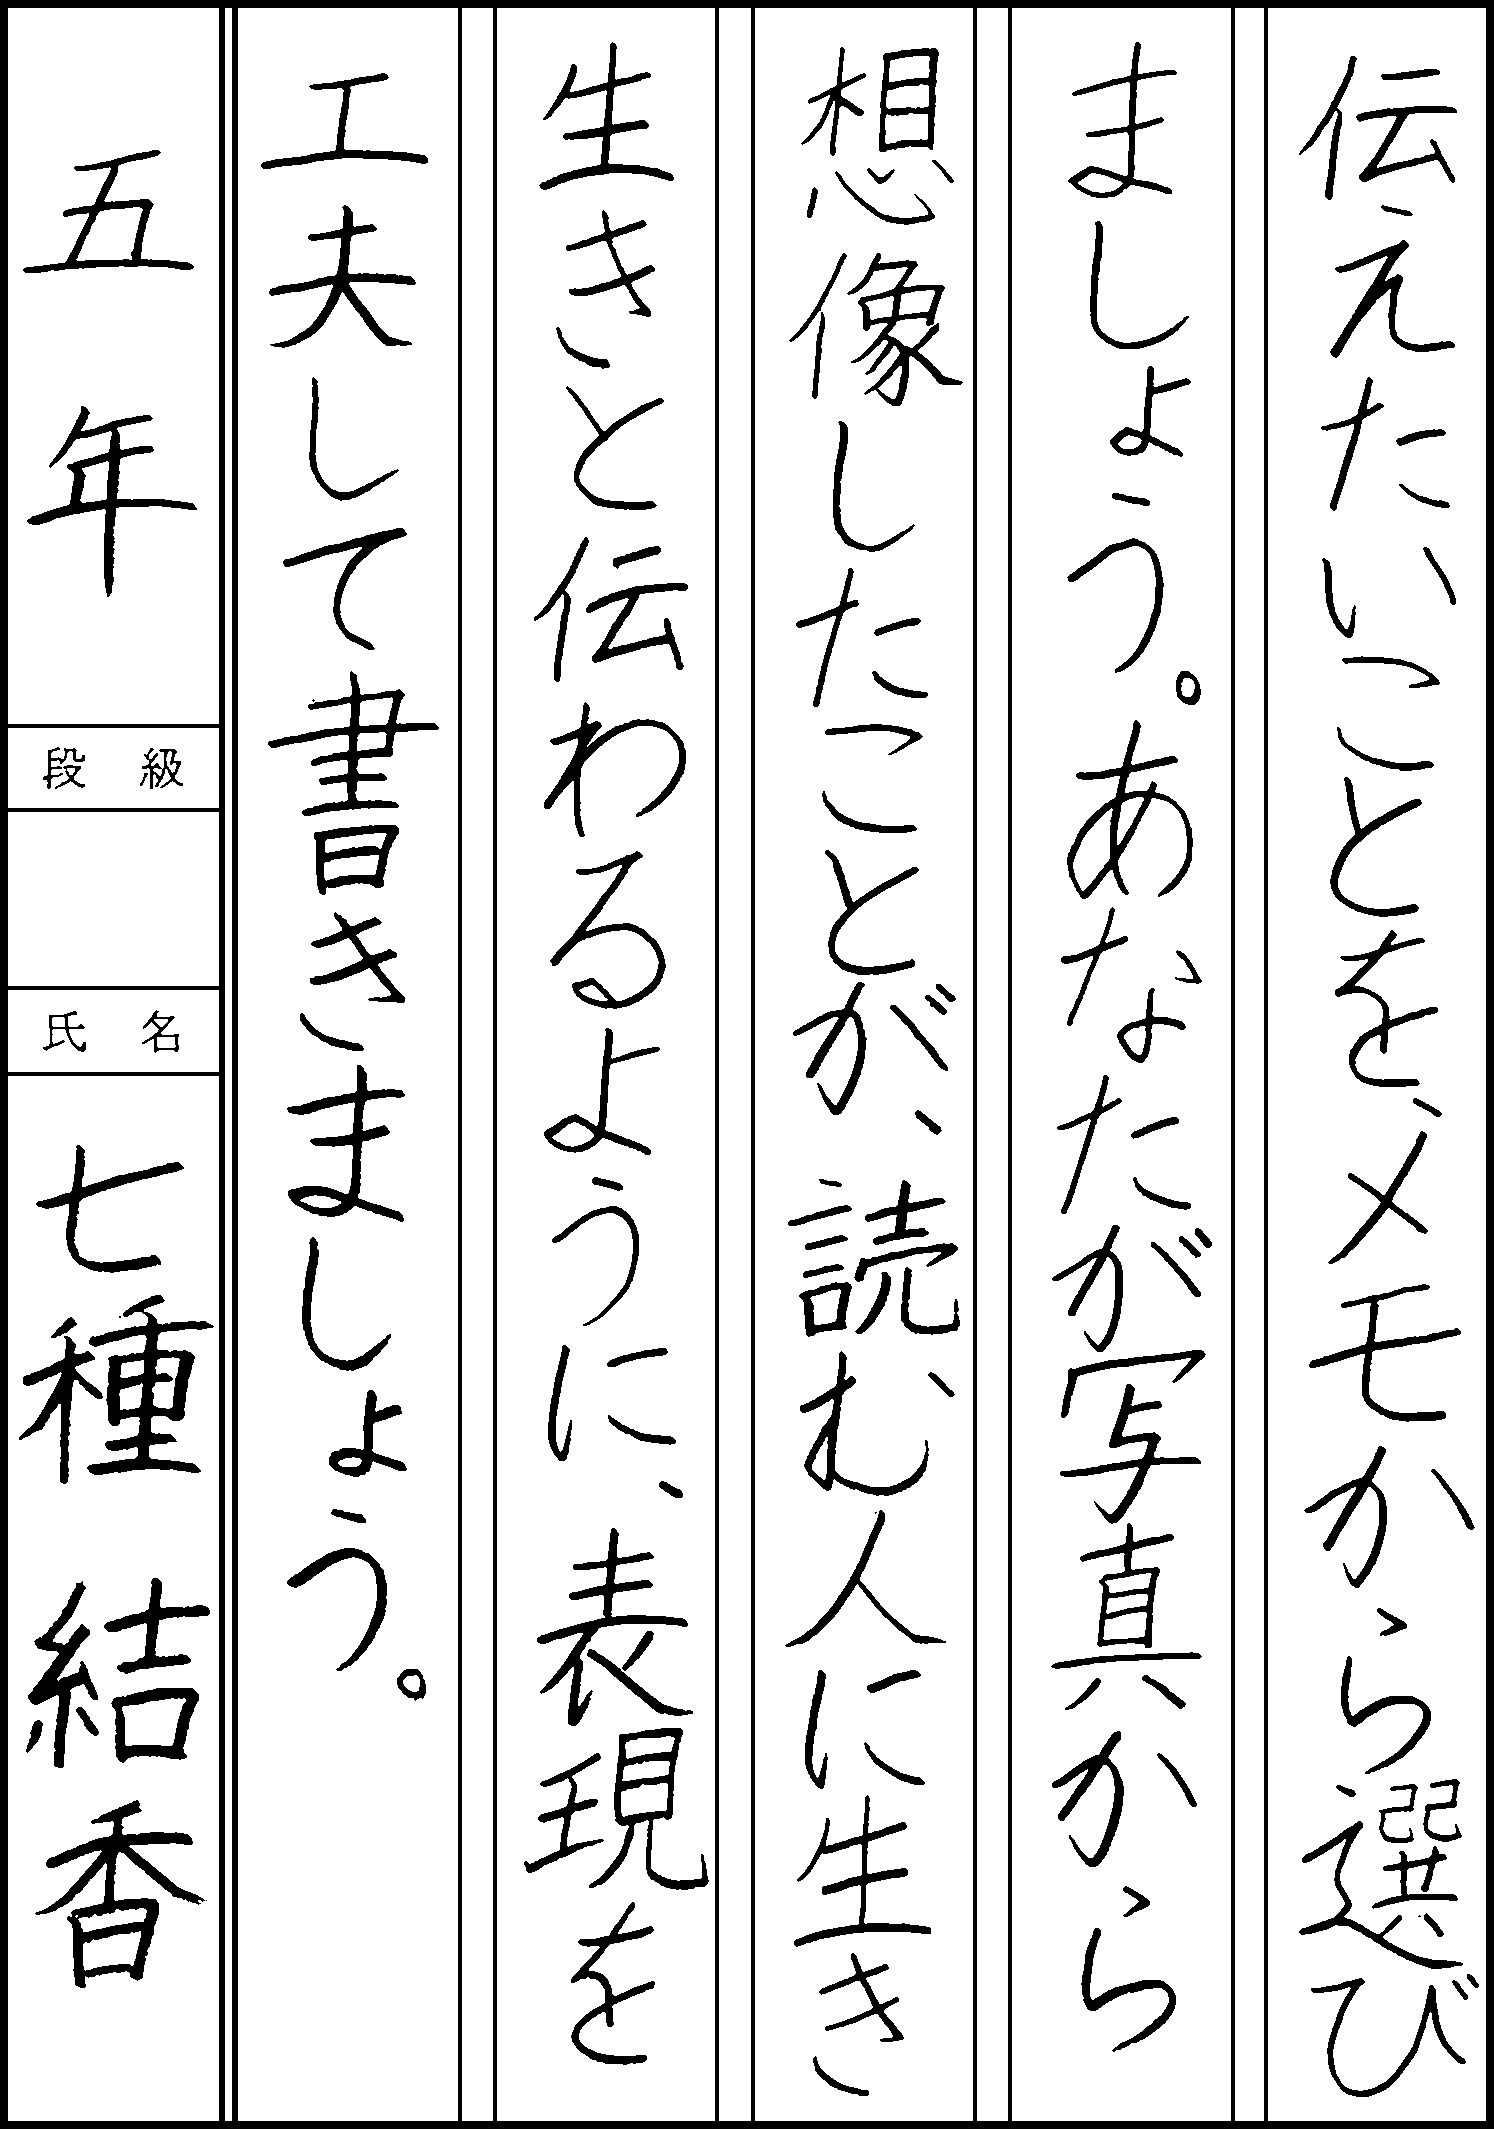 伝えたいことを、メモから選び
ましょう。あなたが写真から
想像したことが、読む人に生き
生きと伝わるように、表現を
工夫して書きましょう。
五年
段級
氏名
七種結香